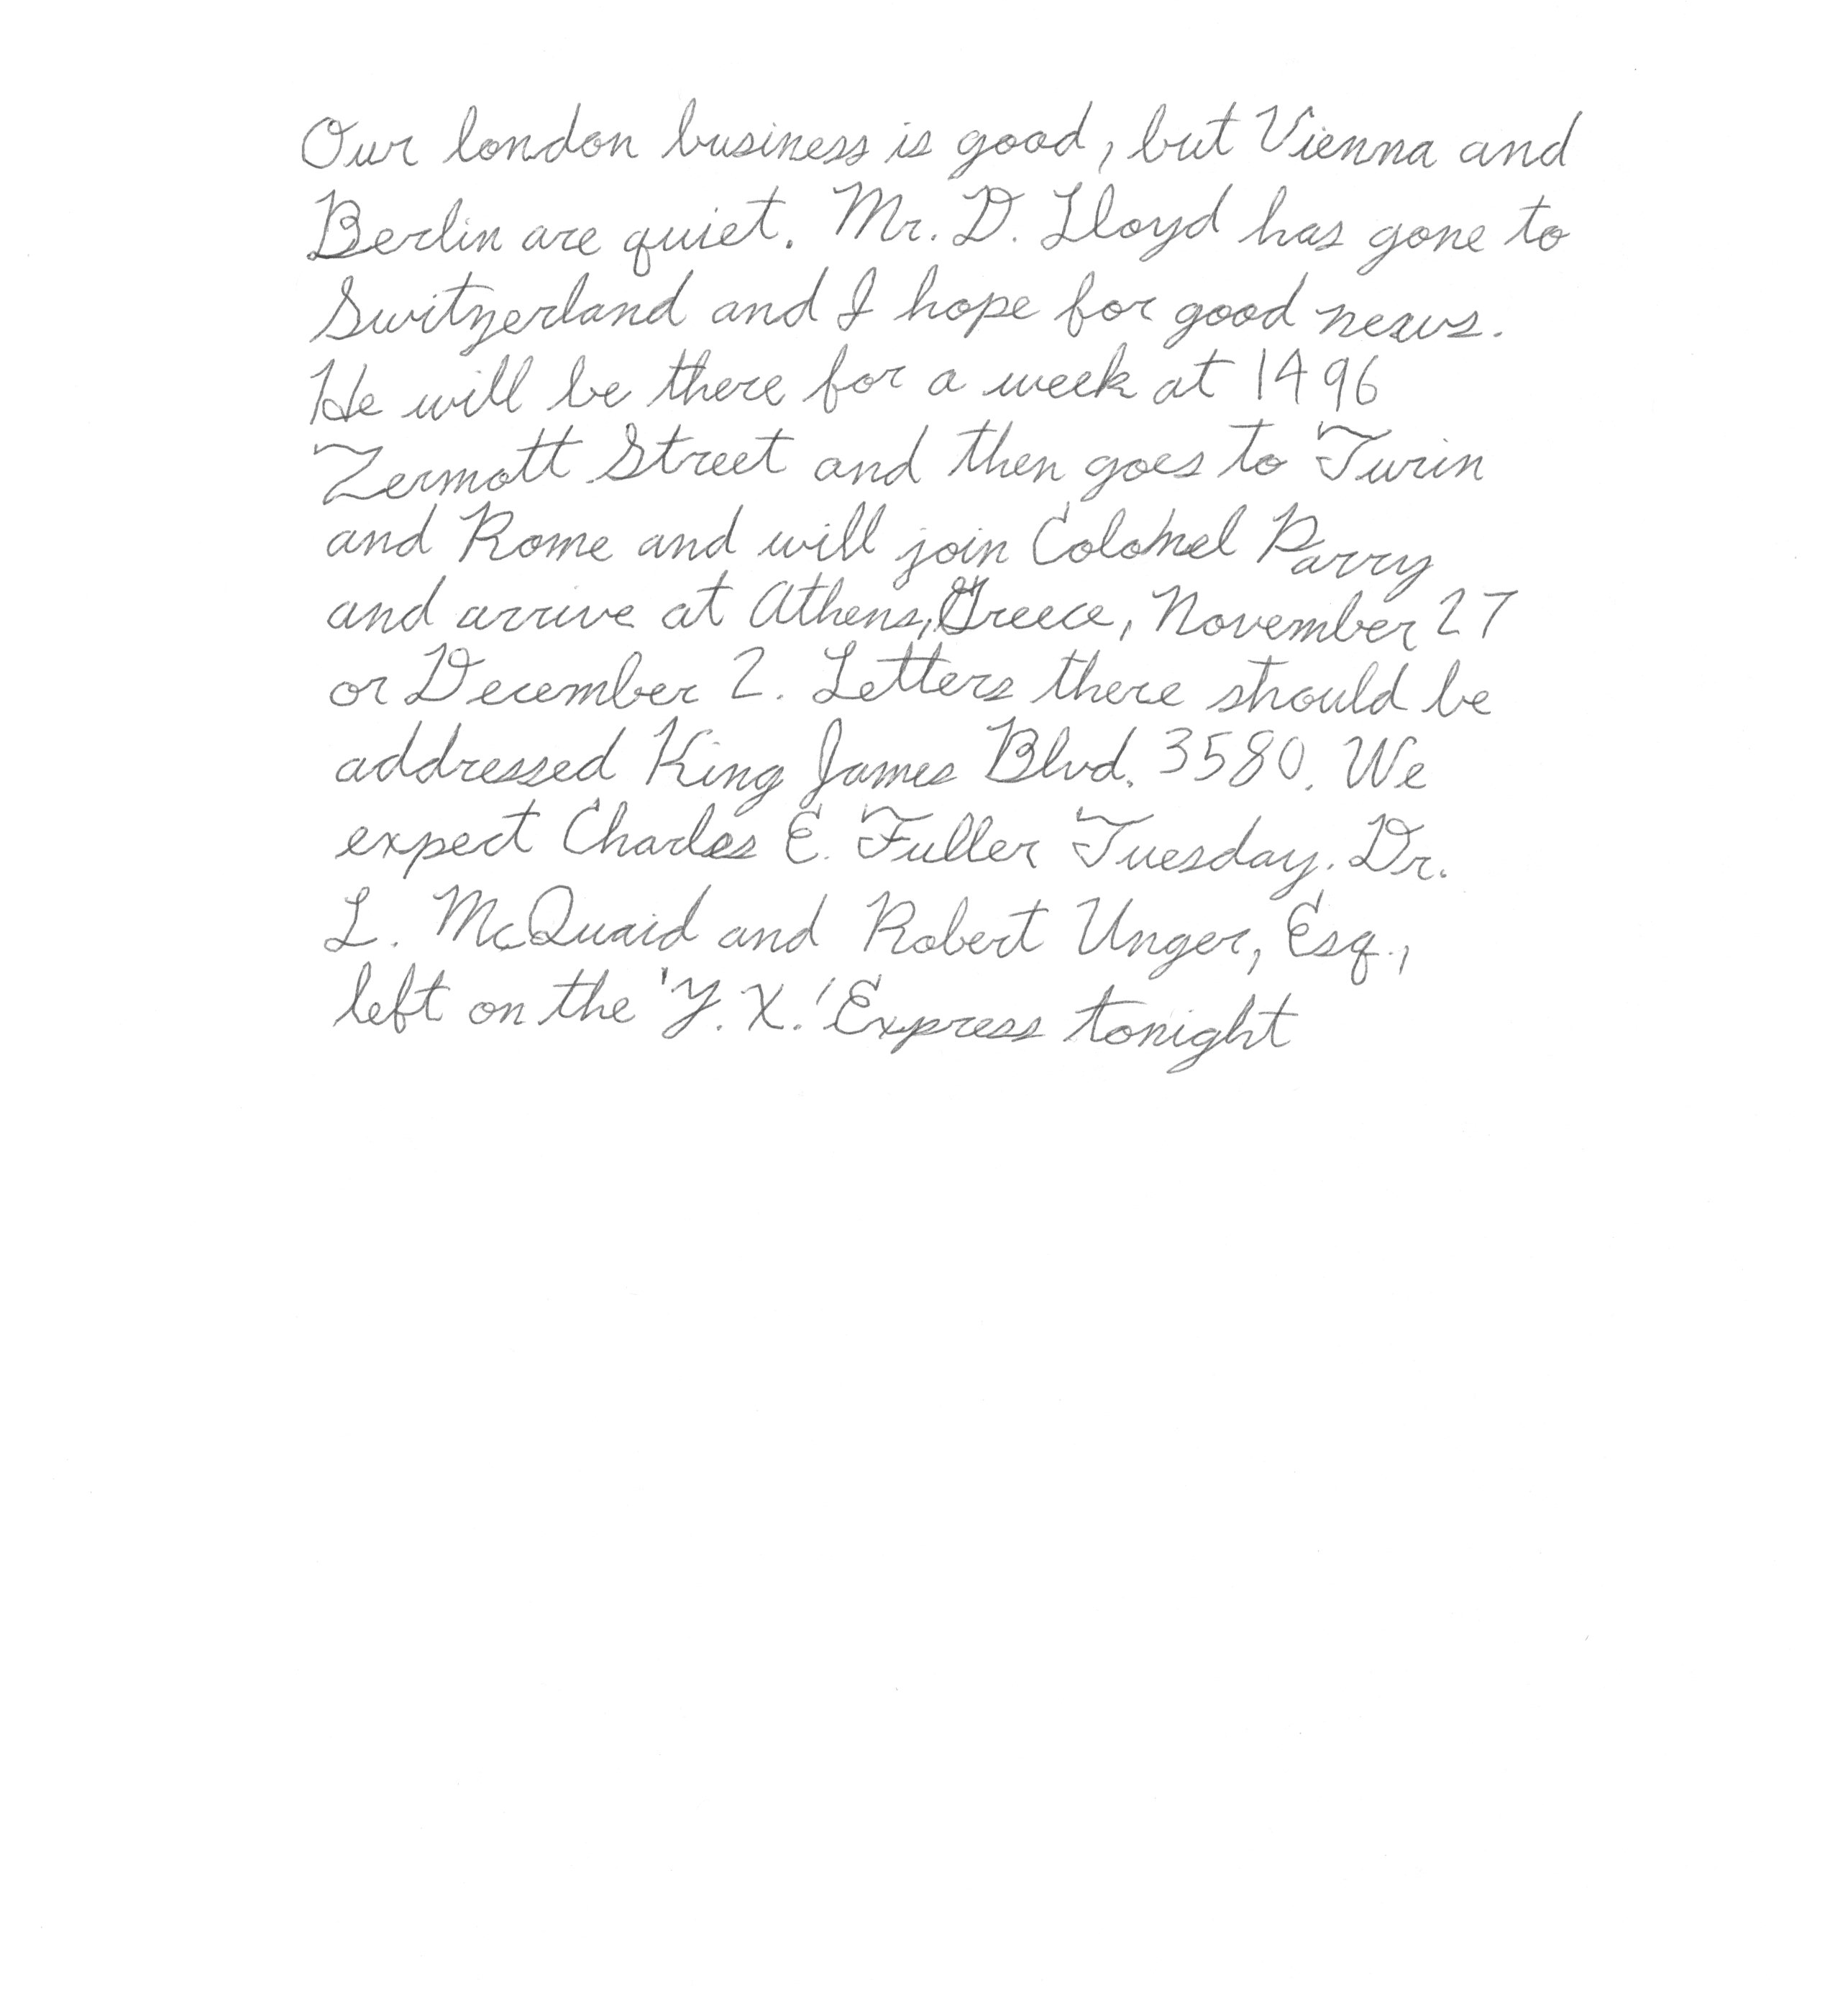 Our london business is good, but Vienna and
Berlin are quiet. Mr. D. Lloyd has gone to
Switzerland and I hope for good news.
He will be there for a week at 1496
Zermott Street and then goes to Turin
and Rome and will join Colonel Parry
and arrive at Athens, Greece, November 27
or December 2. Letters there should be
addressed King James Blvd. 3580. We
expect Charles E. Fuller Tuesday. Dr.
L. McQuaid and Robert Unger, Esq.,
left on the 'Y. X.' Express tonight